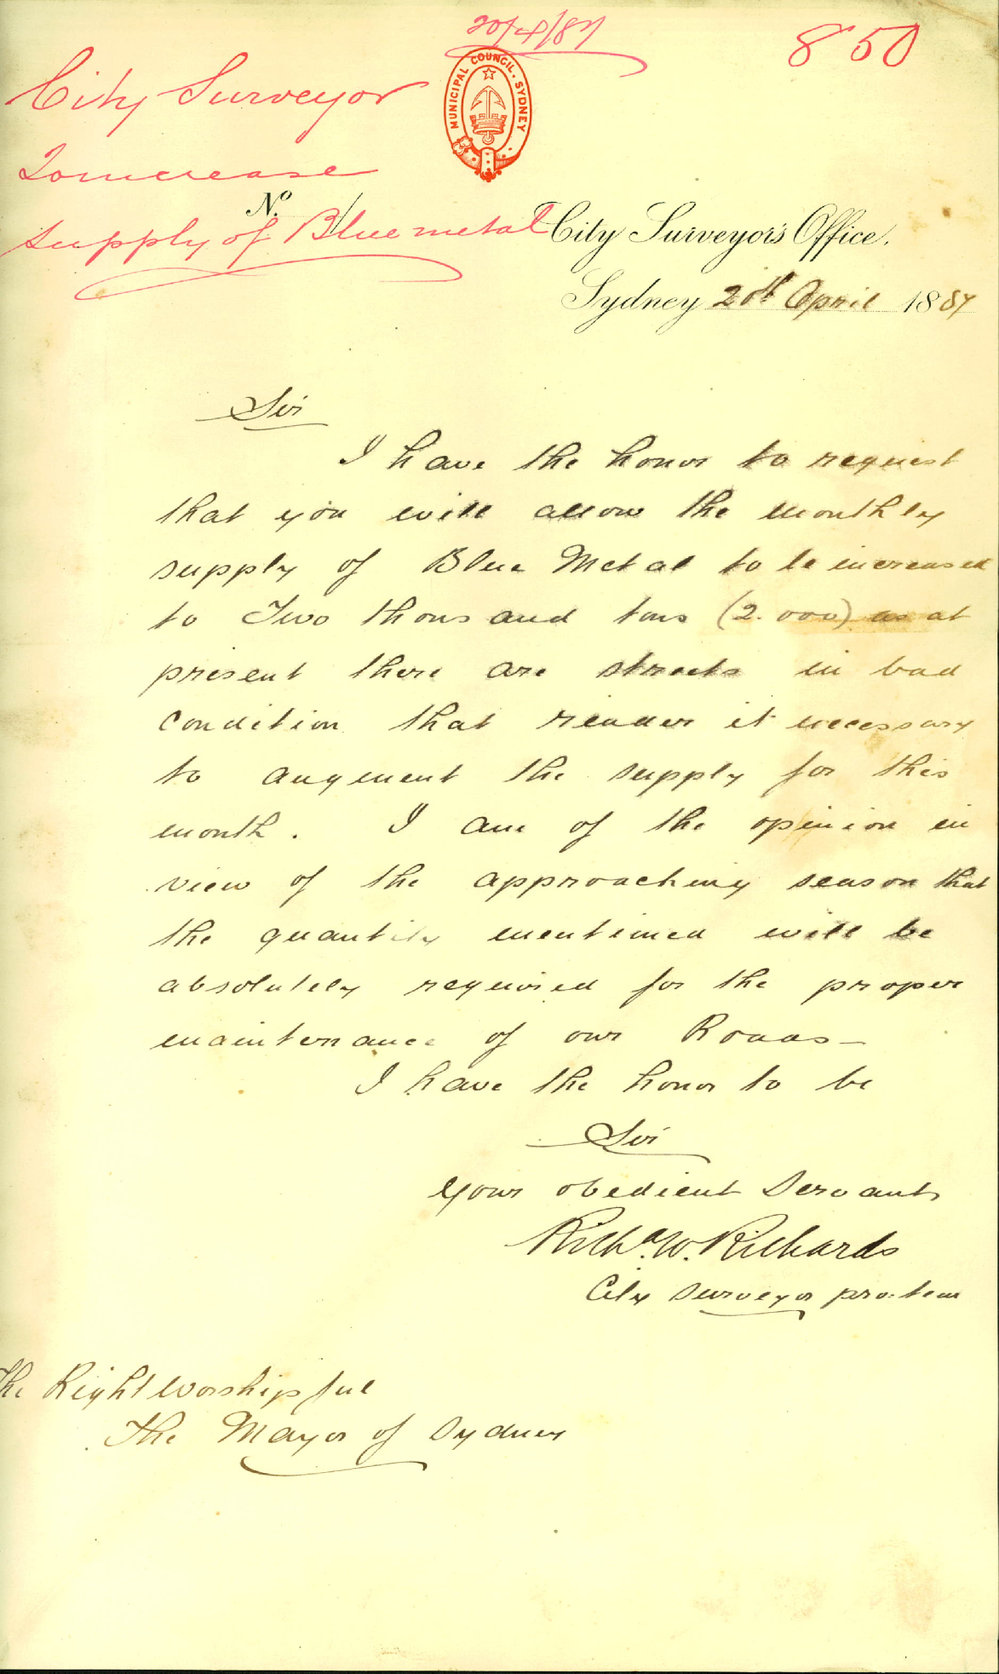 20/4/87
850
City Surveyor
MUNICIPAL COUNCIL. SYDNEY
To increase
No.
supply of Blue metal
City Surveyor's Office.
Sydney 20th April 1887
Sir
I have the honor to request
that you will allow the monthly
supply of Blue Metal to be increased
to Two thousand tons (2.000) as at
present there are streets in bad
condition that render it necessary
to augment the supply for this
month. I am of the opinion in
view of the approaching season that
the quantity mentioned will be
absolutely required for the proper
maintenance of our Roads—
I have the honor to be
Sir
Your obedient Servant
Richd. W. Richards
City Surveyor pro: tem
The Right Worshipful
The Mayor of Sydney